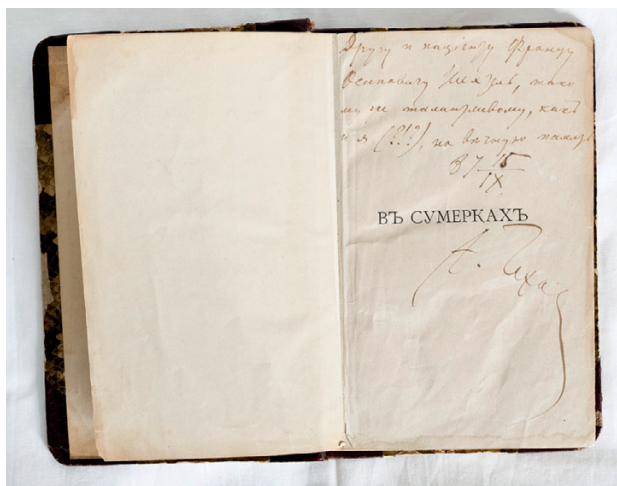 Другу и пацiенту Францу
Осиповичу Шехтель, тако
му же талантливому, какъ
и я (?!?), на вѣчную память
87 15
IX
ВЪ СУМЕРКАХЪ
А. Чехов